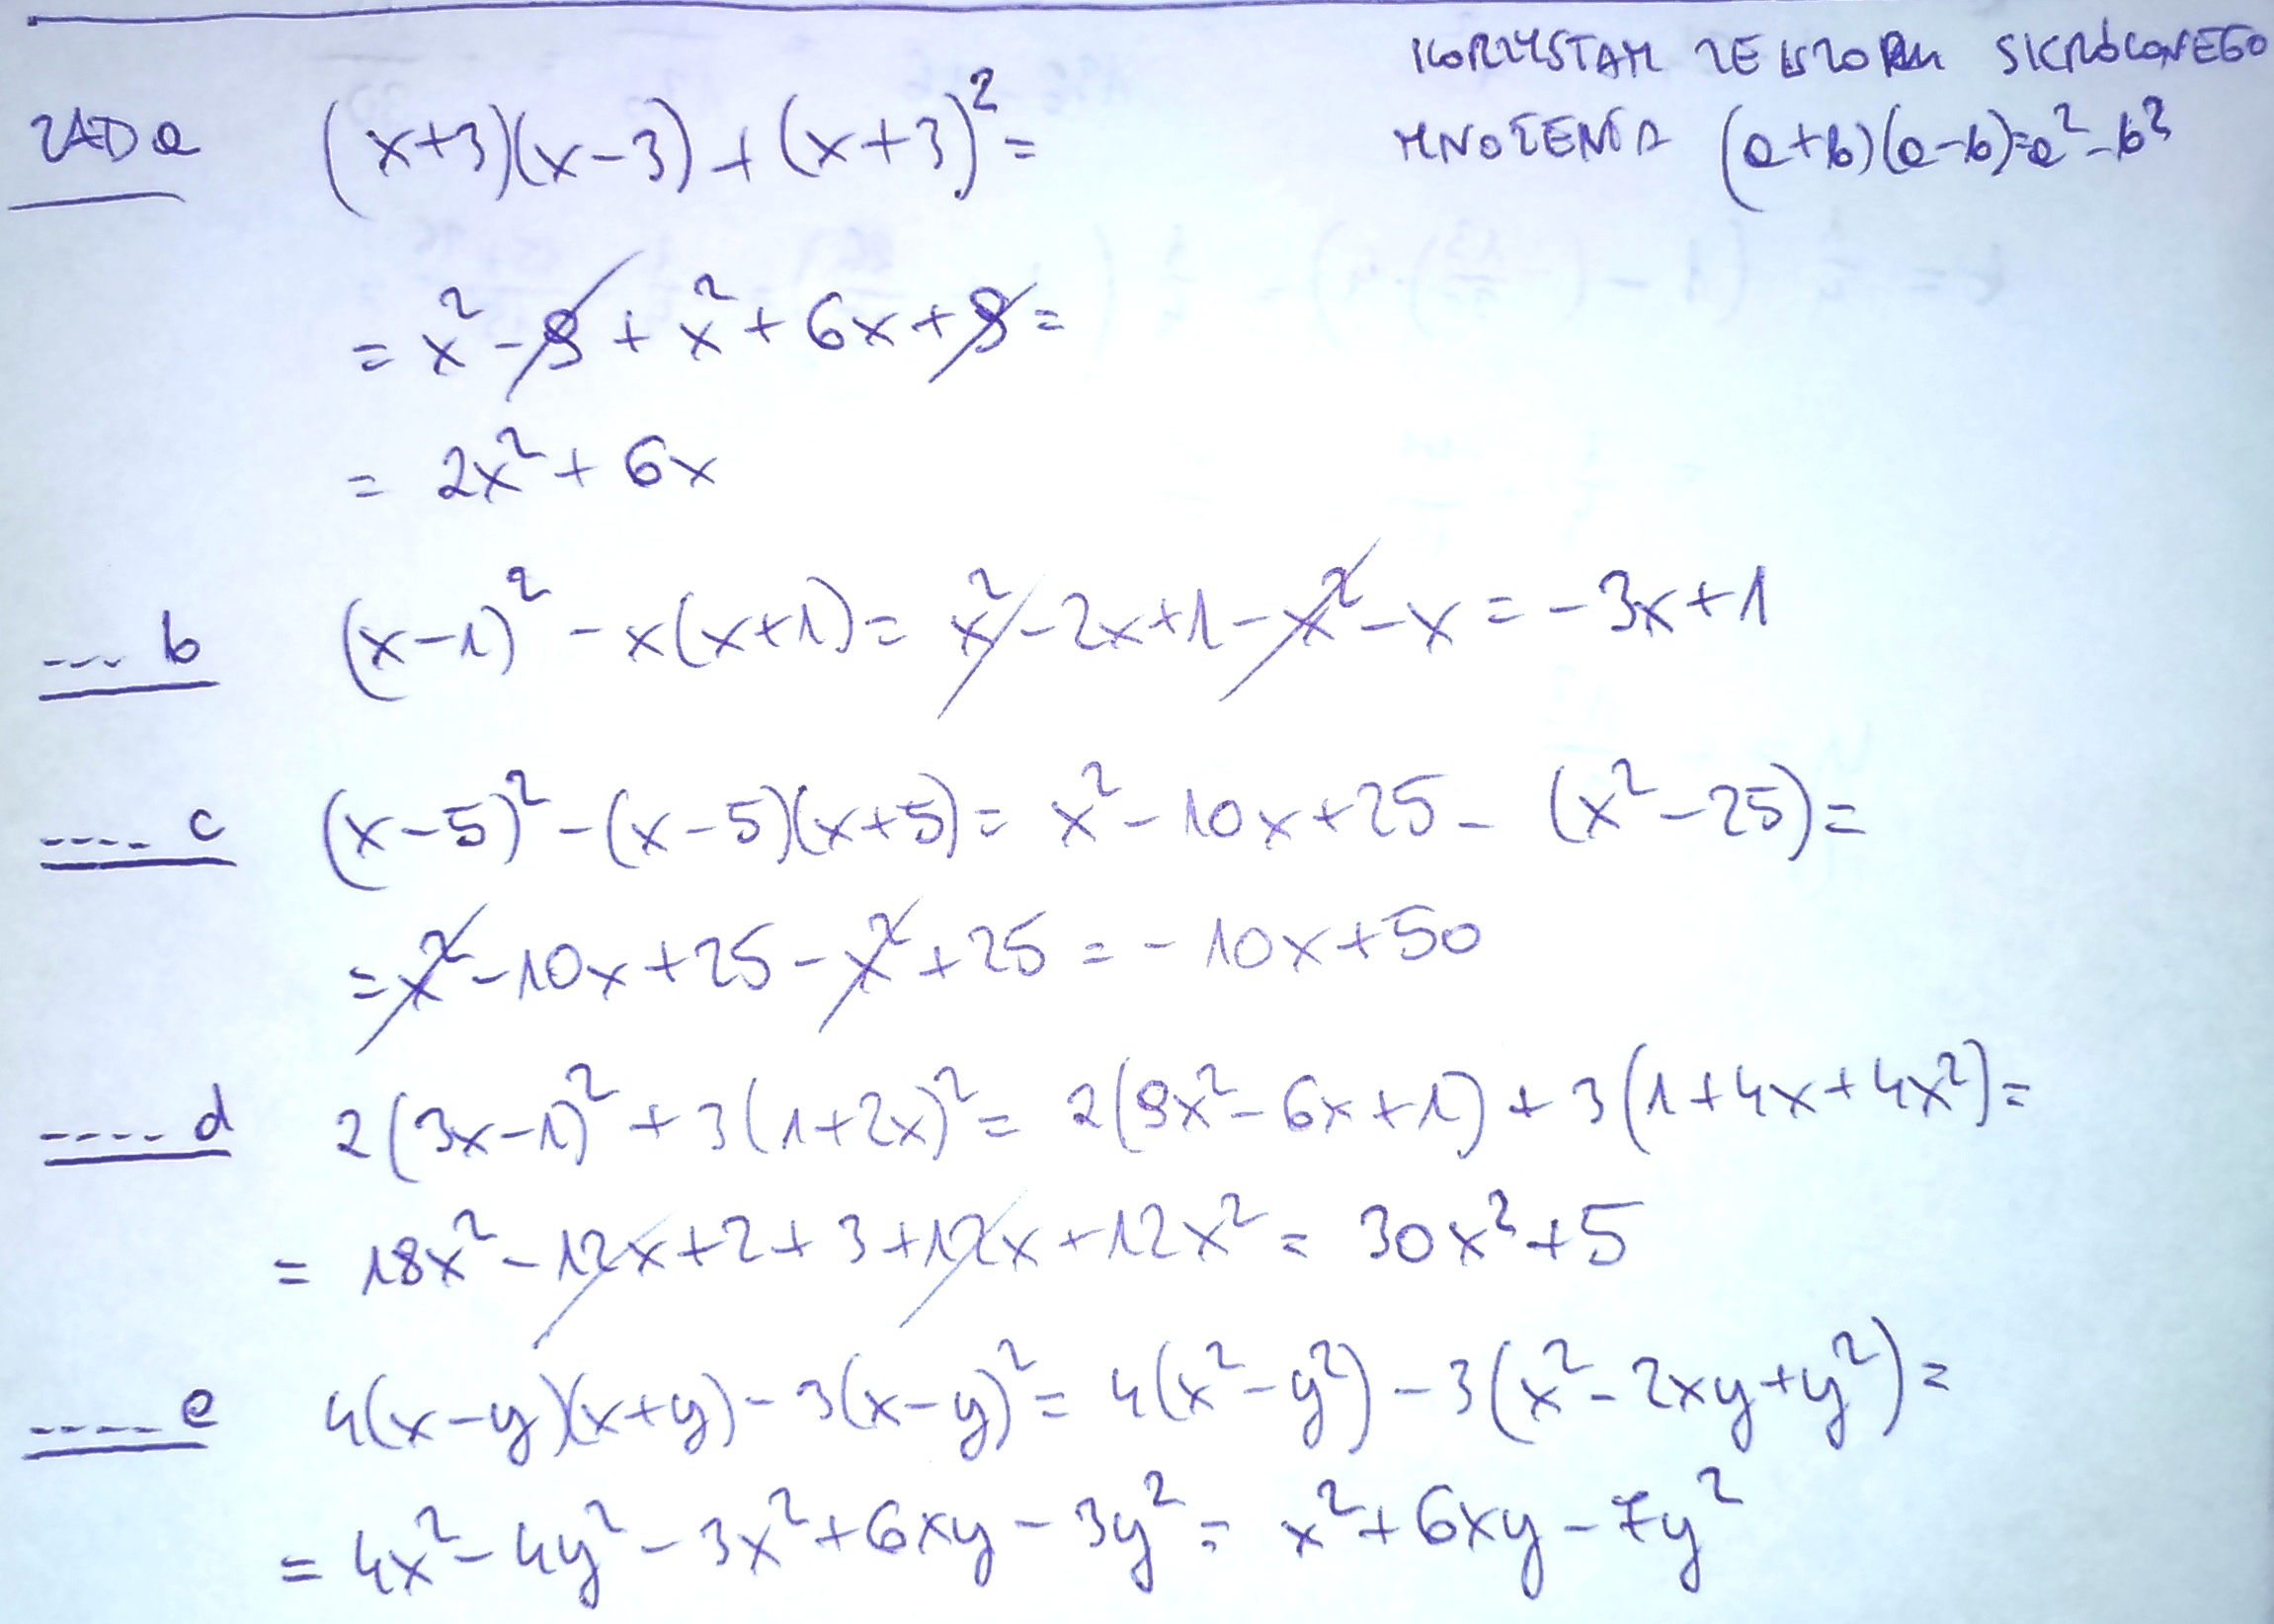 KORZYSTAM ZE WZORU SKRÓCONEGO
MNOŻENIA (a+b)(a-b)=a²-b²
ZAD a (x+3)(x-3)+(x+3)²=
= x²-9+x²+6x+9=
= 2x²+6x
--- b (x-1)²-x(x+1)= x²-2x+1-x²-x=-3x+1
---- c (x-5)²-(x-5)(x+5)= x²-10x+25-(x²-25)=
=x²-10x+25-x²+25=-10x+50
---- d 2(3x-1)²+3(1+2x)²= 2(9x²-6x+1)+3(1+4x+4x²)=
= 18x²-12x+2+3+12x+12x²= 30x²+5
---- e 4(x-y)(x+y)-3(x-y)²= 4(x²-y²)-3(x²-2xy+y²)=
= 4x²-4y²-3x²+6xy-3y²= x²+6xy-7y²